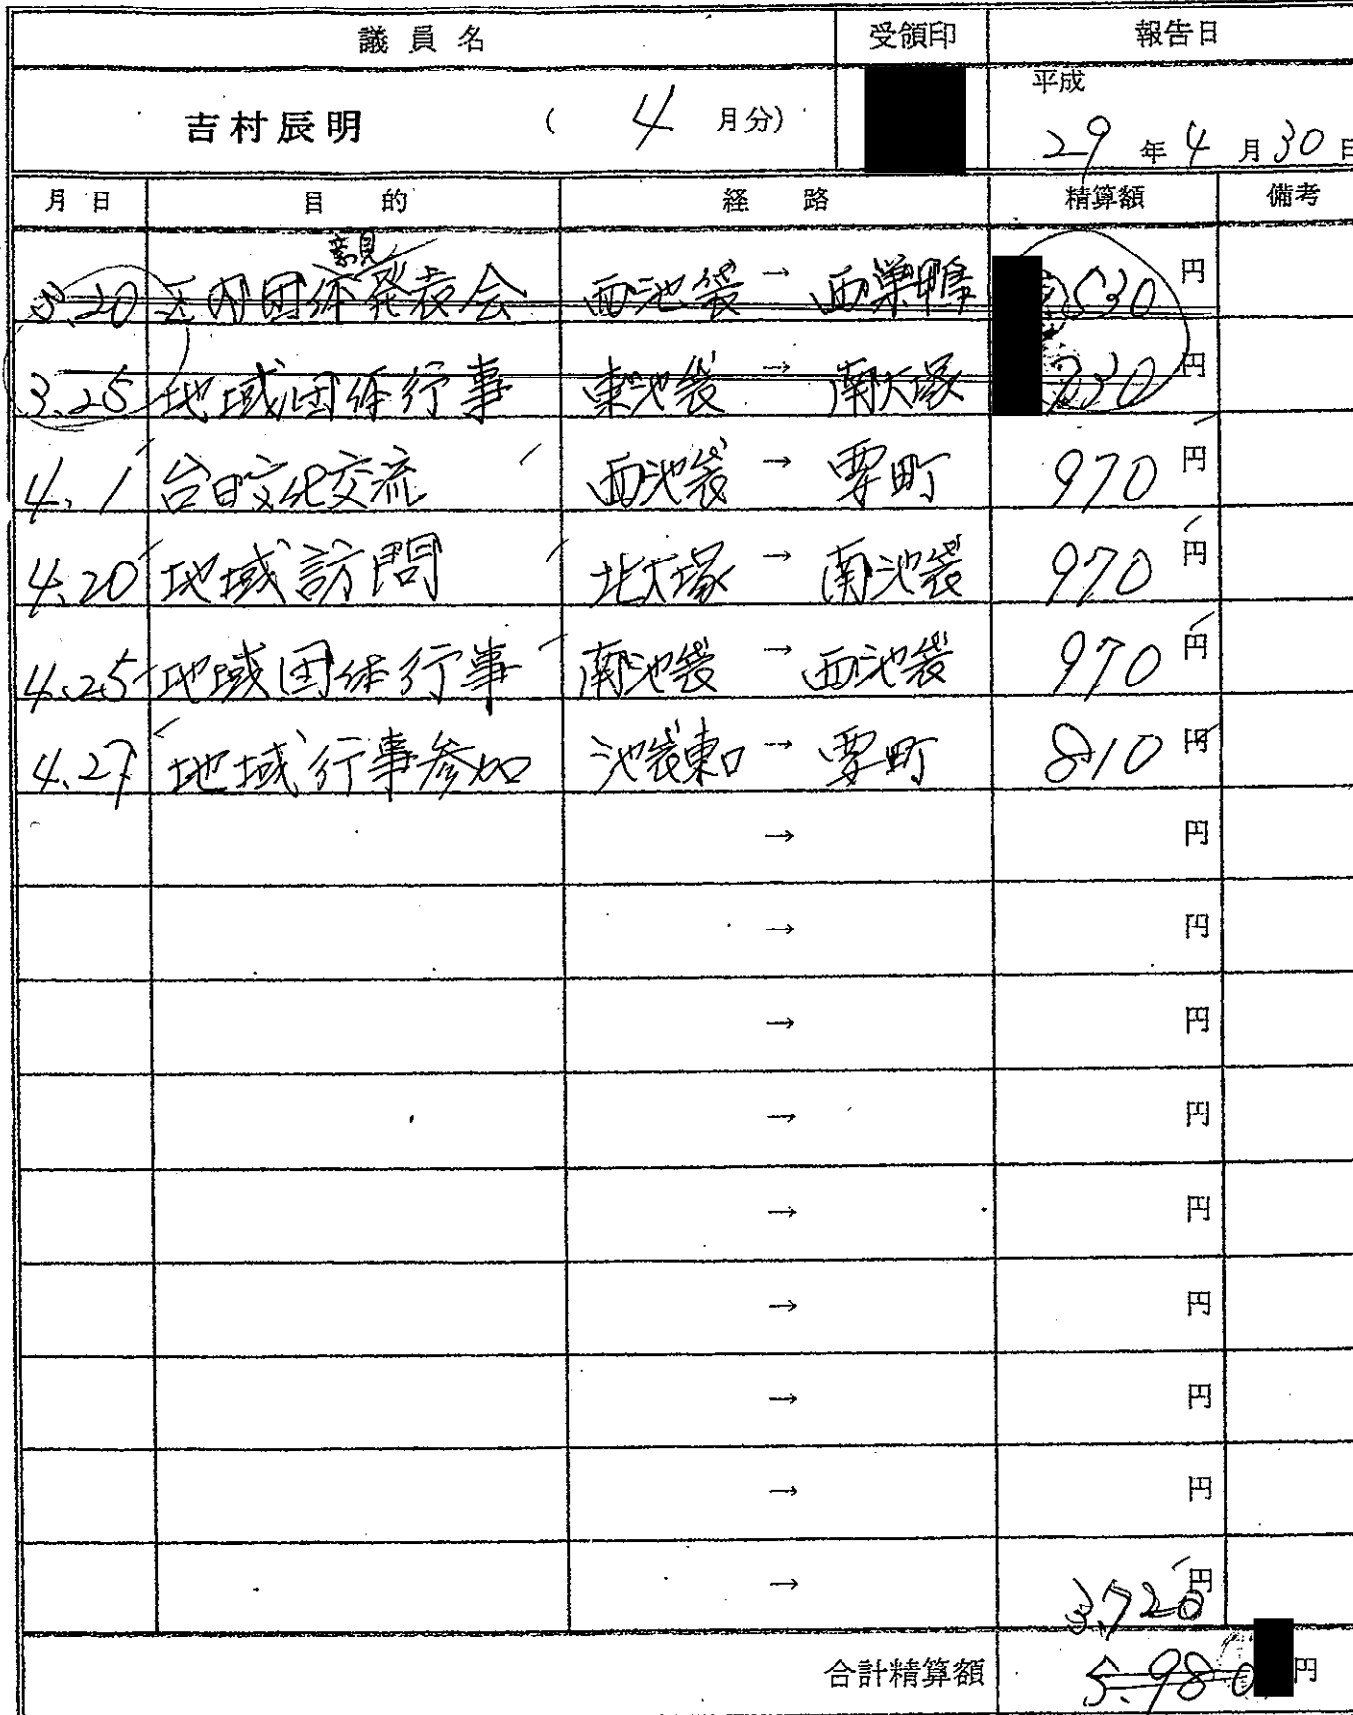 議員名 受領印 報告日
吉村辰明 ( 4 月分) 平成 29 年 4 月 30 日
月日 目的 経路 精算額 備考
意見
3.20 区内団体発表会 西池袋 → 西巣鴨 530 円
3.25 地域団体行事 東池袋 → 南大塚 730 円
4.1 台日文化交流 西池袋 → 要町 970 円
4.20 地域訪問 北大塚 → 南池袋 970 円
4.25 地域団体行事 南池袋 → 西池袋 970 円
4.27 地域行事参加 池袋東口 → 要町 810 円
→ 円
→ 円
→ 円
→ 円
→ 円
→ 円
→ 円
→ 円
→ 円
3,720
合計精算額 5.980 円